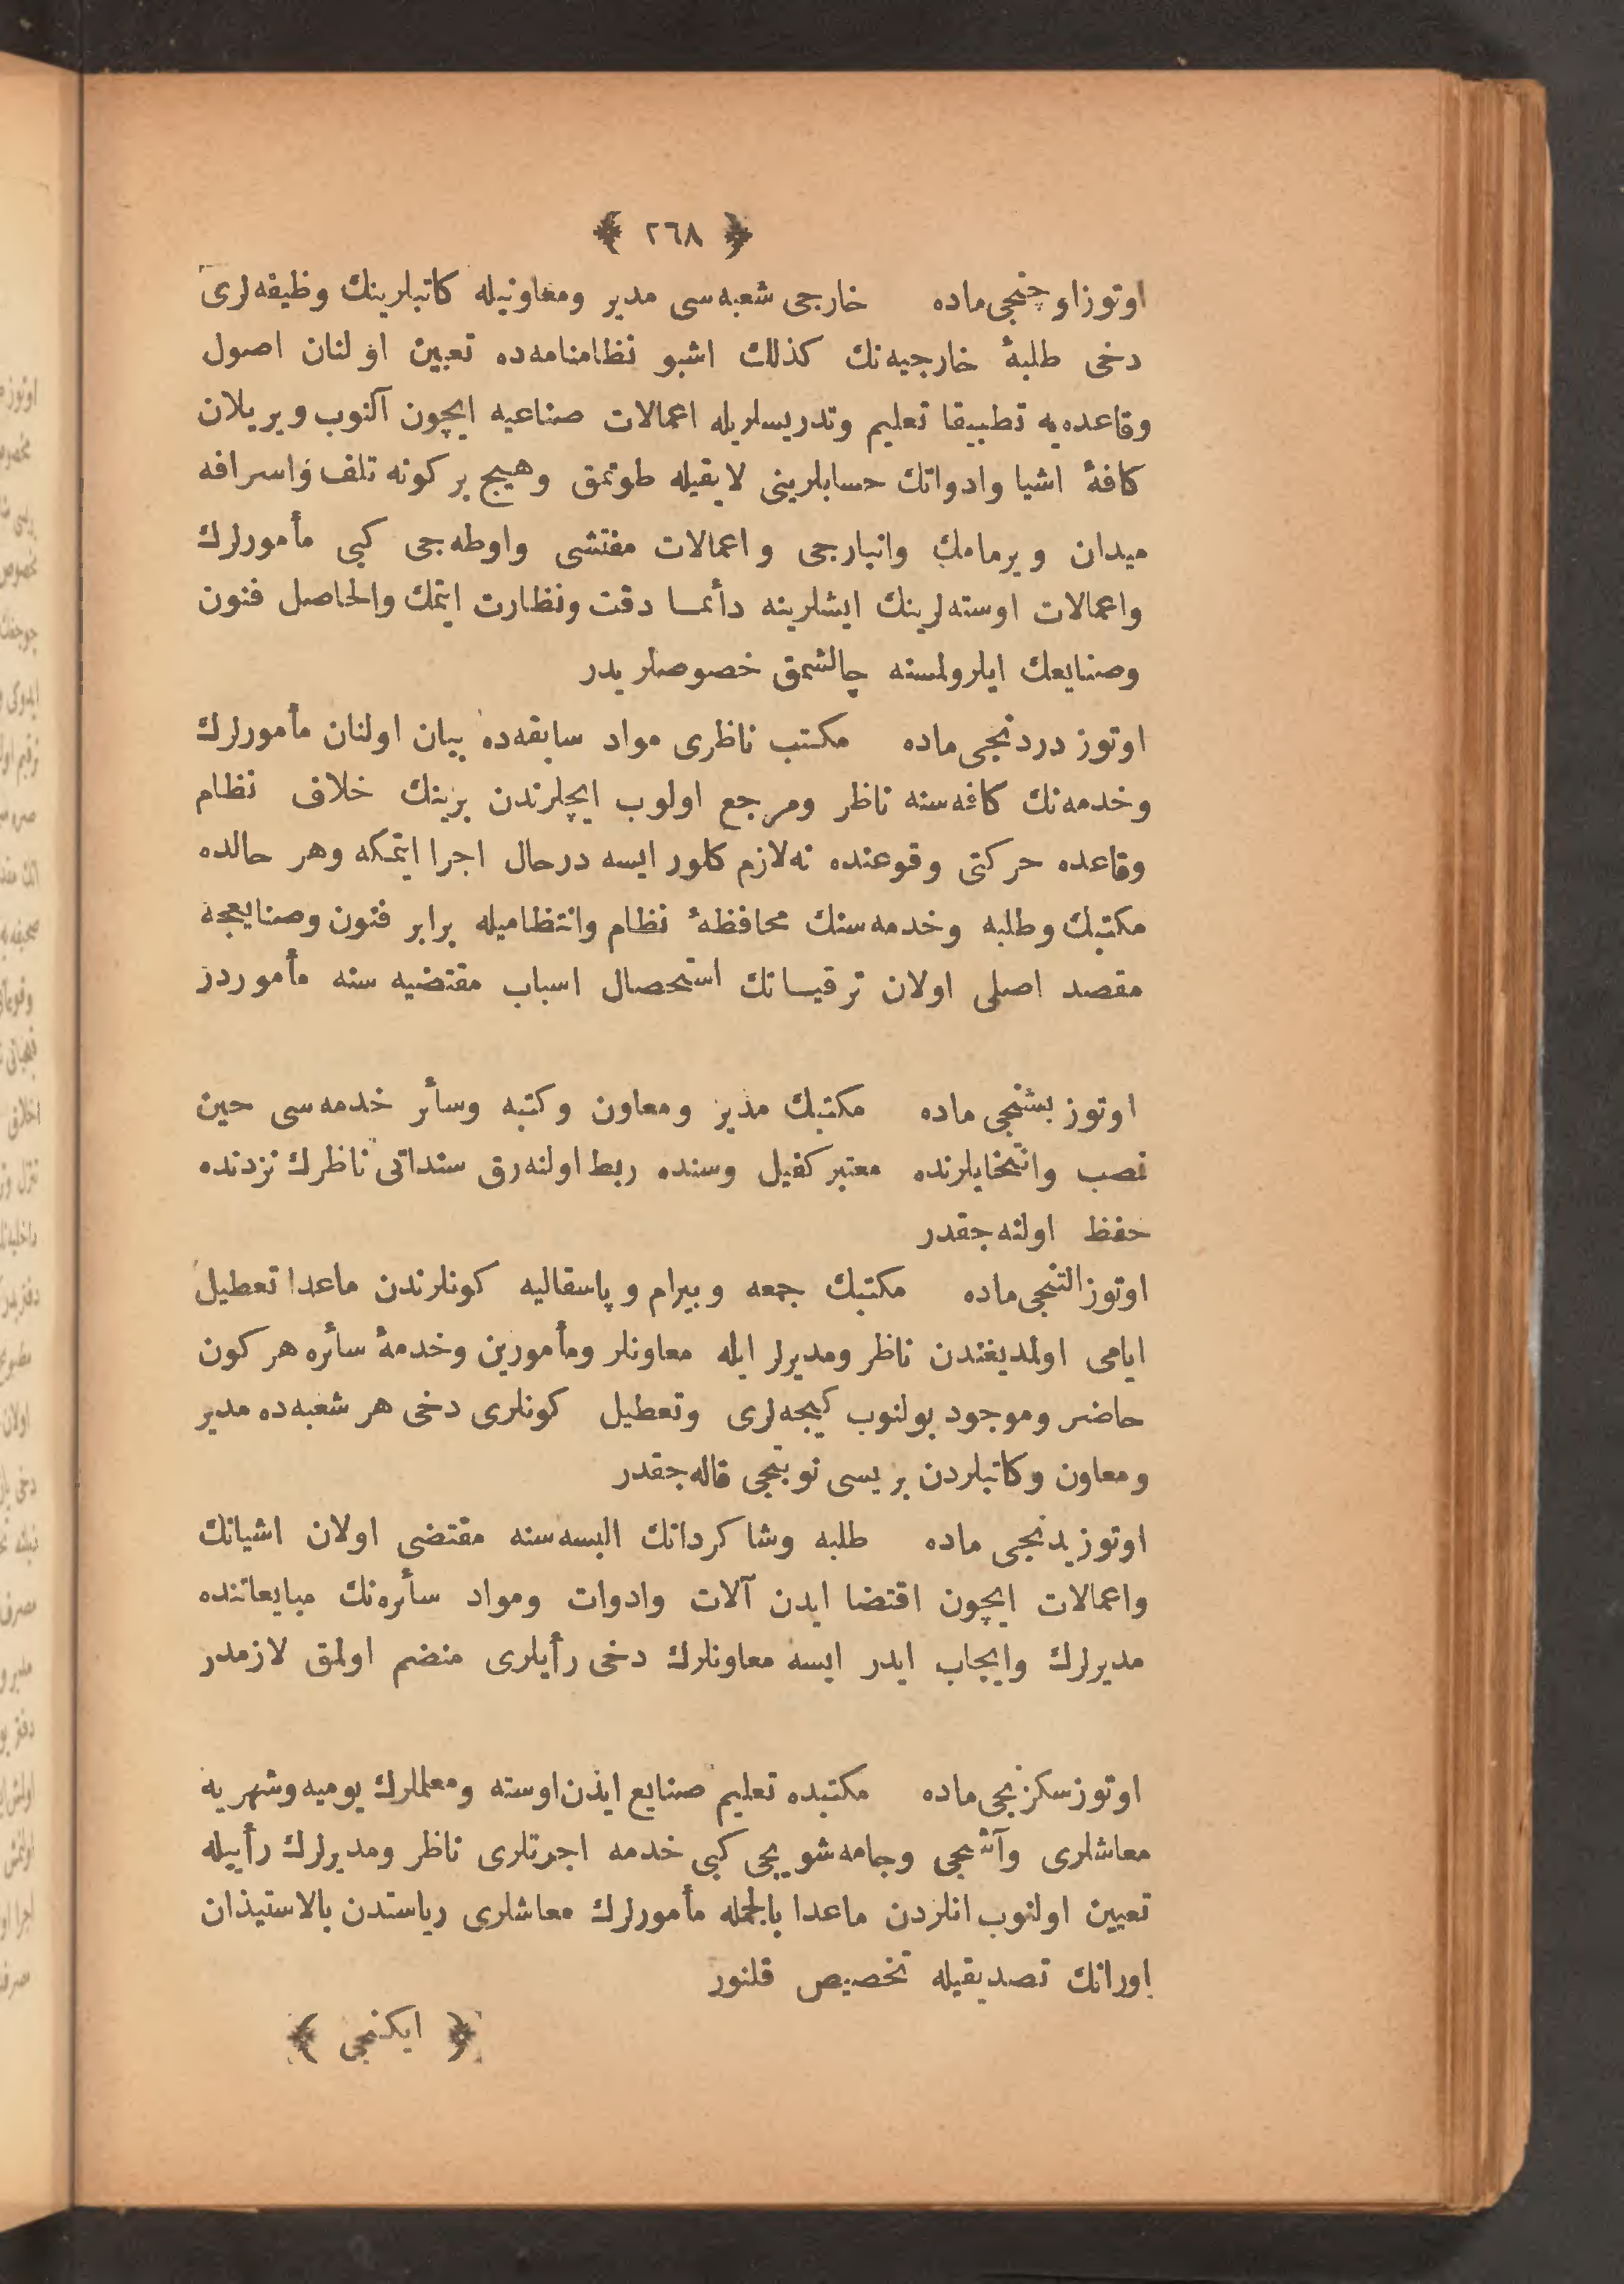 ﴿ ٢٦٨ ﴾
اوتوز اوچنجی ماده خارجی شعبه‌سی مدیر ومعاونیله كاتبلرینك وظیفه‌لری
دخی طلبۀ خارجیه‌نك كذلك اشبو نظامنامه‌ده تعیین اولنان اصول
وقاعده‌یه تطبیقا تعلیم وتدریسلریله اعمالات صناعیه ایچون آلنوب ویریلان
كافۀ اشیا وادواتك حسابلرینی لایقیله طوتمق وهیچ بر كونه تلف واسرافه
میدان ویرمامك وانبارجی واعمالات مفتشی واوطه‌جی كبی مأمورلرك
واعمالات اوسته‌لرینك ایشلرینه دأئما دقت ونظارت ایتمك والحاصل فنون
وصنایعك ایلرولمسنه چالشمق خصوصلریدر
اوتوز دردنجی ماده مكتب ناظری مواد سابقه‌ده بیان اولنان مأمورلرك
وخدمه‌نك كافه‌سنه ناظر ومرجع اولوب ایچلرندن برینك خلاف نظام
وقاعده حركتی وقوعنده نه لازم كلور ایسه درحال اجرا ایتمكه وهر حالده
مكتبك وطلبه وخدمه‌سنك محافظۀ نظام وانتظامیله برابر فنون وصنایعجه
مقصد اصلی اولان ترقیاتك استحصال اسباب مقتضیه سنه مأموردر
اوتوز بشنجی ماده مكتبك مدیر ومعاون وكتبه وسأر خدمه‌سی حین
نصب وانتخابلرنده معتبر كفیل وسنده ربط اولنه‌رق سنداتی ناظرك نزدنده
حفظ اولنه‌جقدر
اوتوز التنجی ماده مكتبك جمعه وبیرام وپاسقالیه كونلرندن ماعدا تعطیل
ایامی اولمدیغندن ناظر ومدیرلر ایله معاونلر ومأمورین وخدمۀ سأره هر كون
حاضر وموجود بولنوب كیجه‌لری وتعطیل كونلری دخی هر شعبه‌ده مدیر
ومعاون وكاتبلردن بریسی نوبتجی قاله‌جقدر
اوتوز یدنجی ماده طلبه وشاكردانك البسه‌سنه مقتضی اولان اشیانك
واعمالات ایچون اقتضا ایدن آلات وادوات ومواد سأره‌نك مبایعاتنده
مدیرلرك وایجاب ایدر ایسه معاونلرك دخی رأیلری منضم اولمق لازمدر
اوتوز سكزنجی ماده مكتبده تعلیم صنایع ایدن اوسته ومعلملرك یومیه وشهریه
معاشلری وآشجی وجامه‌شویجی كبی خدمه اجرتلری ناظر ومدیرلرك رأییله
تعیین اولنوب انلردن ماعدا بالجمله مأمورلرك معاشلری ریاستدن بالاستیذان
اورانك تصدیقیله تخصیص قلنور
﴿ ایكنجی ﴾